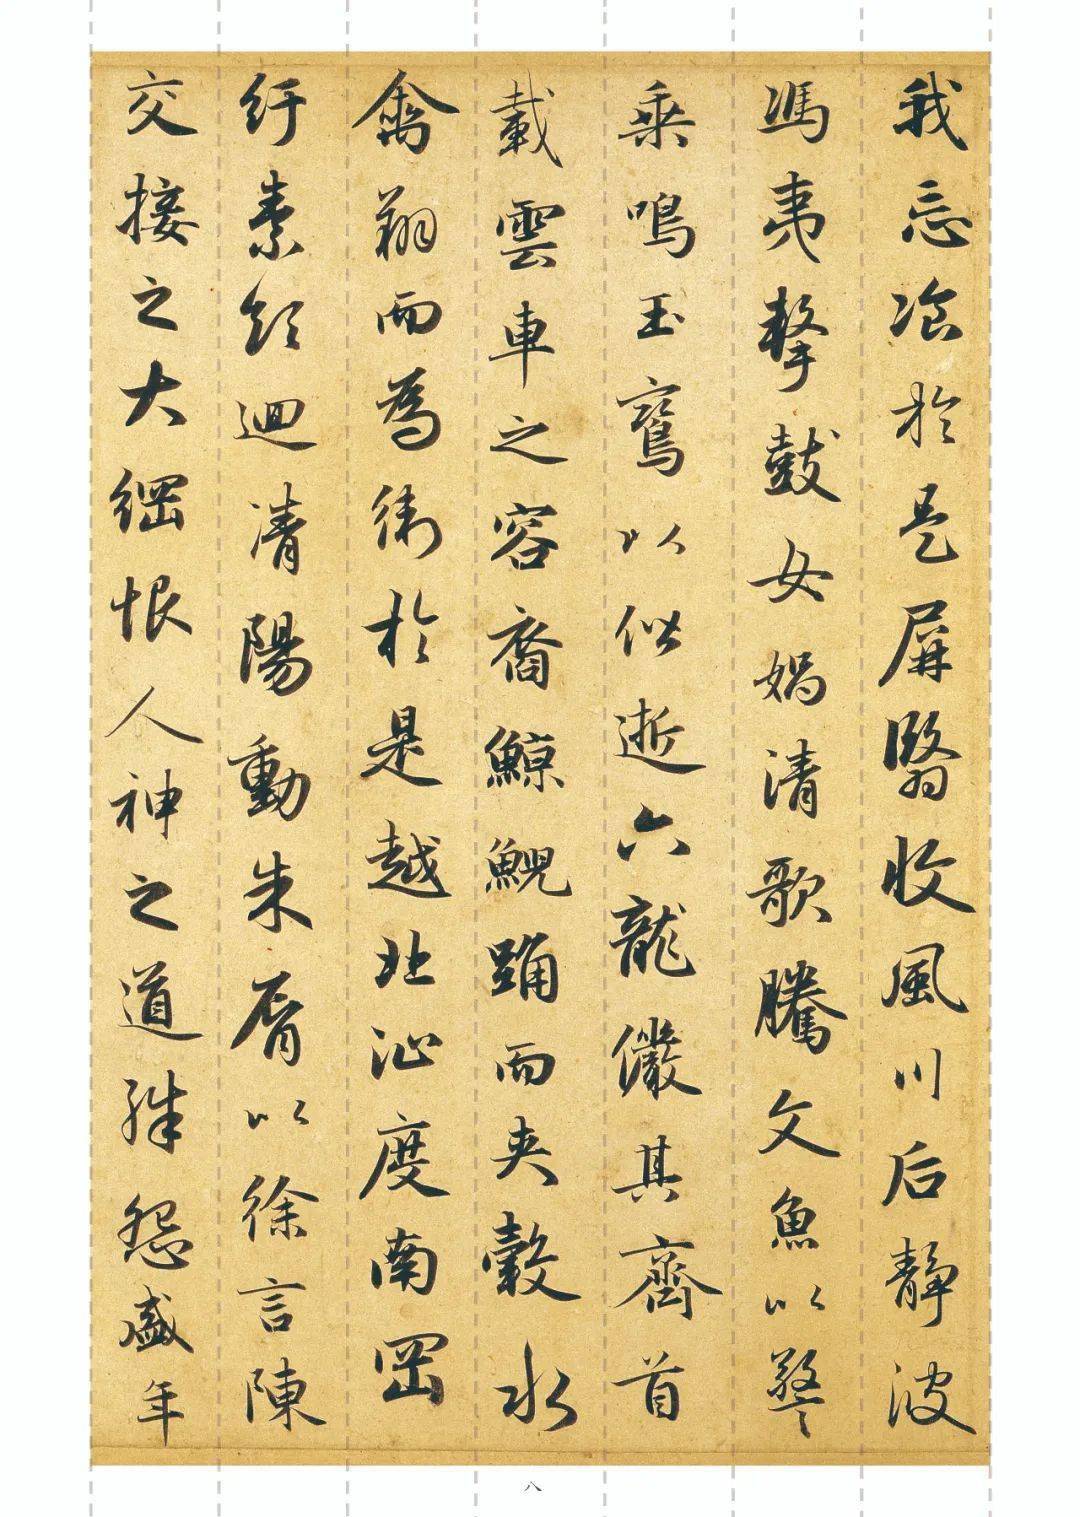 我忘飡於是屏翳收風川后靜波
馮夷擊鼓女媧清歌騰文魚以警
乘鳴玉鸞以偕逝六龍儼其齊首
載雲車之容裔鯨鯢踊而夾轂水
禽翔而為衛於是越北沚度南岡
紆素領迴清陽動朱脣以徐言陳
交接之大綱恨人神之道殊怨盛年
八